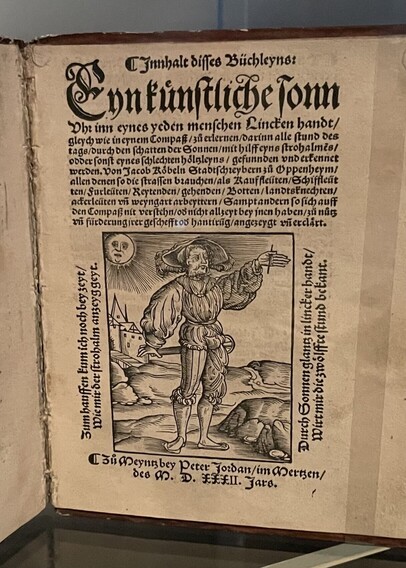 ☾ Innhalt disses Büchleyns:
Eyn künstliche sonn
Vhr inn eynes yeden menschen Lincken handt/
gleych wie in eynem Compaß/ zů erlernen/ darinn alle stund des
tags/ durch den schatten der Sonnen/ mit hilff eyns strohalmẽs/
odder sonst eynes schlechten höltzleyns/ gefunnden vnd erkennet
werden. Von Jacob Köbeln Stadtschreybern zů Oppenheym/
allen denen so die strassen brauchen/ als Kauffleüten/ Schiffleüt
ten/ Fürleüten/ Reytenden/ gehenden/ Botten/ landtsknechten/
ackerleüten vñ weyngart arbeyttern/ Sampt andern so sich auff
den Compaß nit verstehn/ oð nicht allzeyt bey inen haben/ zů nütz
vñ fürderung irer geschefft oð hantirũg/ angezeygt vñ erclärt.
Zum hauffen kum ich noch bey zeyt/
Wie mir der strohalm anzeyg geyt.
Durch Sonnen glantz in lincker handt/
Wirt mir die zwölffte stund bekant.
☾ Zů Meyntz bey Peter Jordan/ im Mertzen/
des M. D. XXXII. Jars.